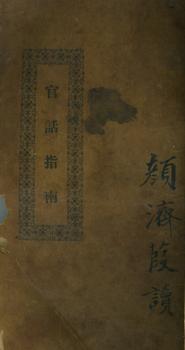 官話指南
顏濟葭讀